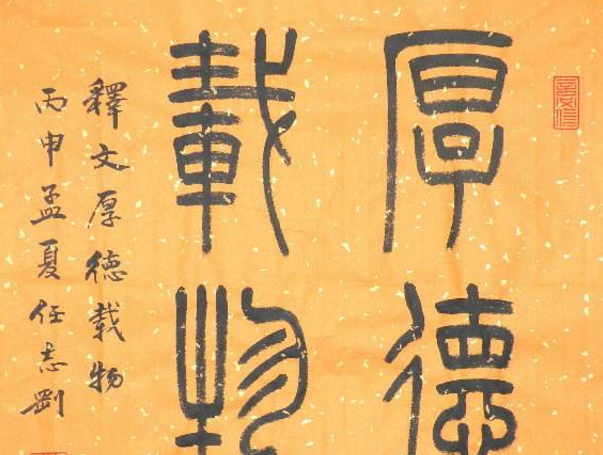 厚德
載物
釋文厚德载物
丙申孟夏任志剛